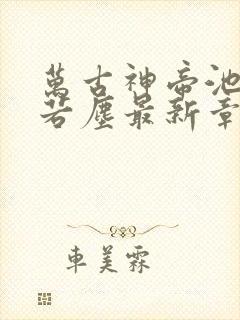 萬古神帝池
若塵最新章
車美霖